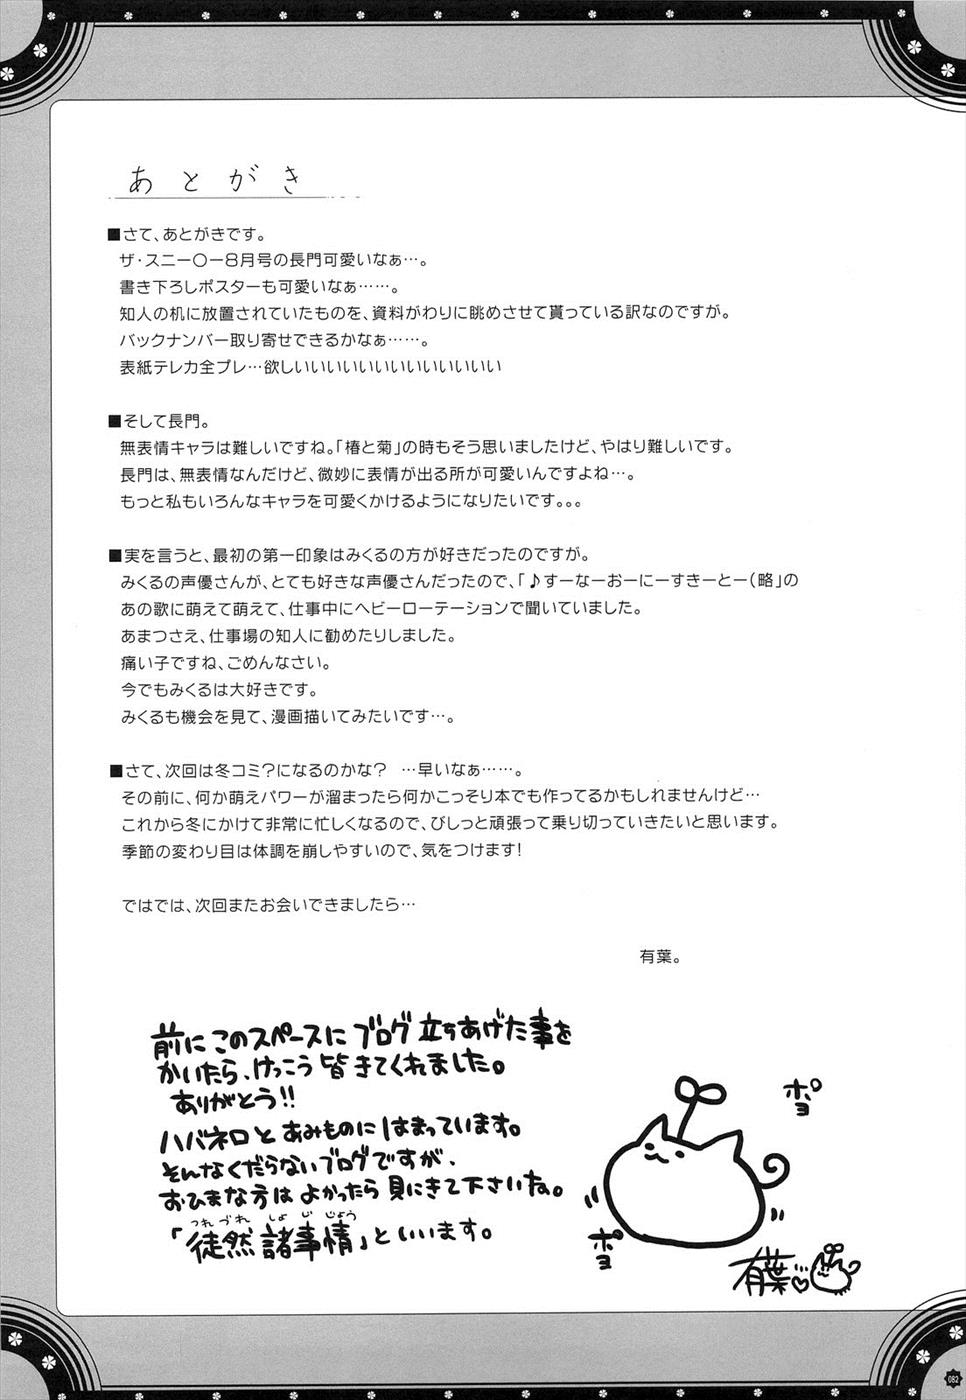 あとがき
■さて、あとがきです。
ザ・スニー〇ー8月号の長門可愛いなぁ…。
書き下ろしポスターも可愛いなぁ……。
知人の机に放置されていたものを、資料がわりに眺めさせて貰っている訳なのですが。
バックナンバー取り寄せできるかなぁ……。
表紙テレカ全プレ…欲しいいいいいいいいいいいいい
■そして長門。
無表情キャラは難しいですね。「椿と菊」の時もそう思いましたけど、やはり難しいです。
長門は、無表情なんだけど、微妙に表情が出る所が可愛いんですよね…。
もっと私もいろんなキャラを可愛くかけるようになりたいです。。。
■実を言うと、最初の第一印象はみくるの方が好きだったのですが。
みくるの声優さんが、とても好きな声優さんだったので、「♪すーなーおーにーすきーとー（略」の
あの歌に萌えて萌えて、仕事中にヘビーローテーションで聞いていました。
あまつさえ、仕事場の知人に勧めたりしました。
痛い子ですね、ごめんなさい。
今でもみくるは大好きです。
みくるも機会を見て、漫画描いてみたいです…。
■さて、次回は冬コミ？になるのかな？　…早いなぁ……。
その前に、何か萌えパワーが溜まったら何かこっそり本でも作ってるかもしれませんけど…
これから冬にかけて非常に忙しくなるので、びしっと頑張って乗り切っていきたいと思います。
季節の変わり目は体調を崩しやすいので、気をつけます！
ではでは、次回またお会いできましたら…
有葉。
前にこのスペースにブログ立ちあげた事を
かいたら、けっこう皆きてくれました。
ありがとう!!
ハバネロとあみものにはまっています。
そんなくだらないブログですが、
おひまな方はよかったら見にきて下さいね。
つれづれ しょじじょう
「徒然諸事情」といいます。
ポヨ
ポヨ
有葉
082